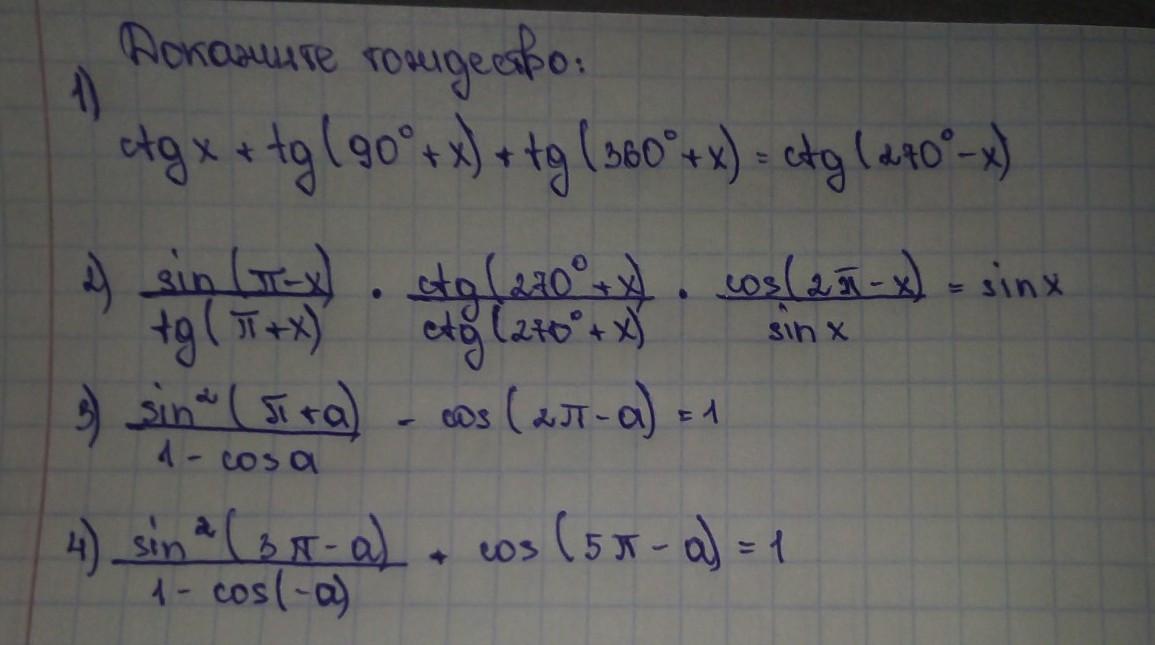 Докажите тождество:
1)
ctg x + tg(90° + x) + tg(360° + x) = ctg(270° - x)
2) sin(π-x)/tg(π+x) · ctg(270° + x)/ctg(270° + x) · cos(2π - x)/sin x = sin x
3) sin²(π+a)/1 - cos a - cos(2π - a) = 1
4) sin²(3π - a)/1 - cos(-a) + cos(5π - a) = 1